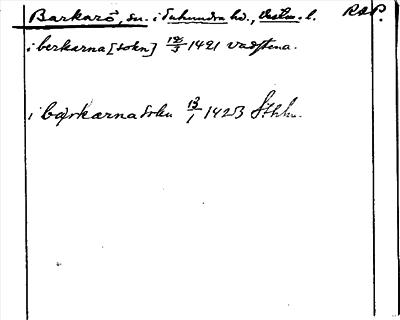 Barkarö, sn. i Tuhundra hd., Västm. l. RAP.
i berkarna [sokn] 12/3 1421 Vadstena.
i bærkærna sokn 13/1 1423 Sthlm.